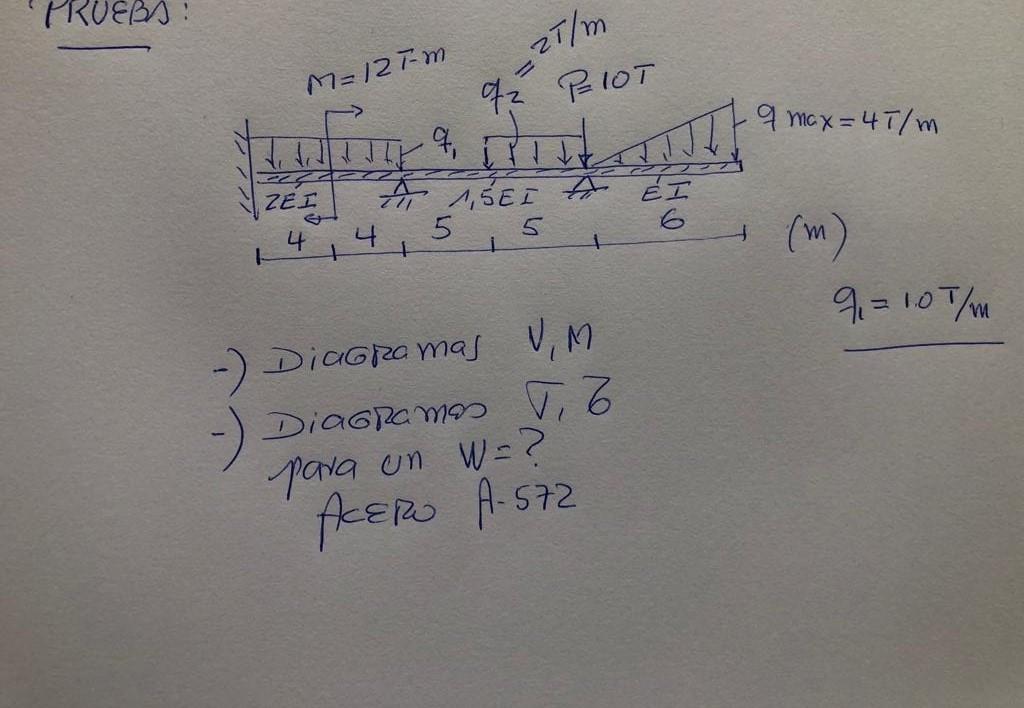 PRUEBA:
M=12T-m
q2 = 2T/m
P=10T
q1
q max = 4T/m
2EI
1,5EI
EI
4 4 5 5 6 (m)
q1 = 1.0 T/m
-) Diagramas V, M
-) Diagramas σ, τ
para un W=?
Acero A-572